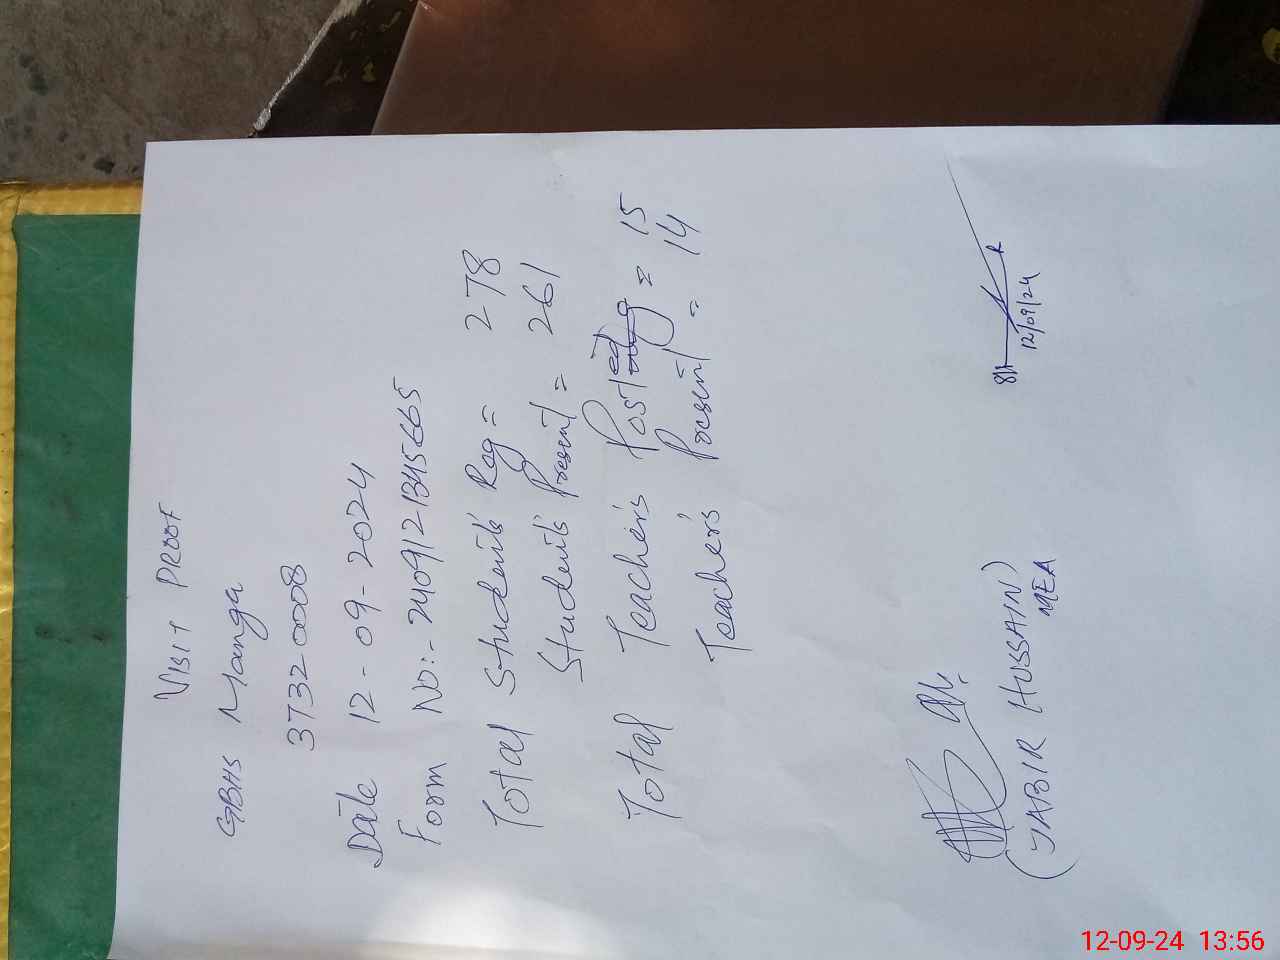 VISIT PROOF
GBHS Manga
37320008
Date 12-09-2024
Form No:- 2409121345665
Total Students Reg = 278
Students Present = 261
Total Teachers Posted = 15
Teachers Present = 14
(JABIR HUSSAIN)
MEA
12/09/24
12-09-24 13:56